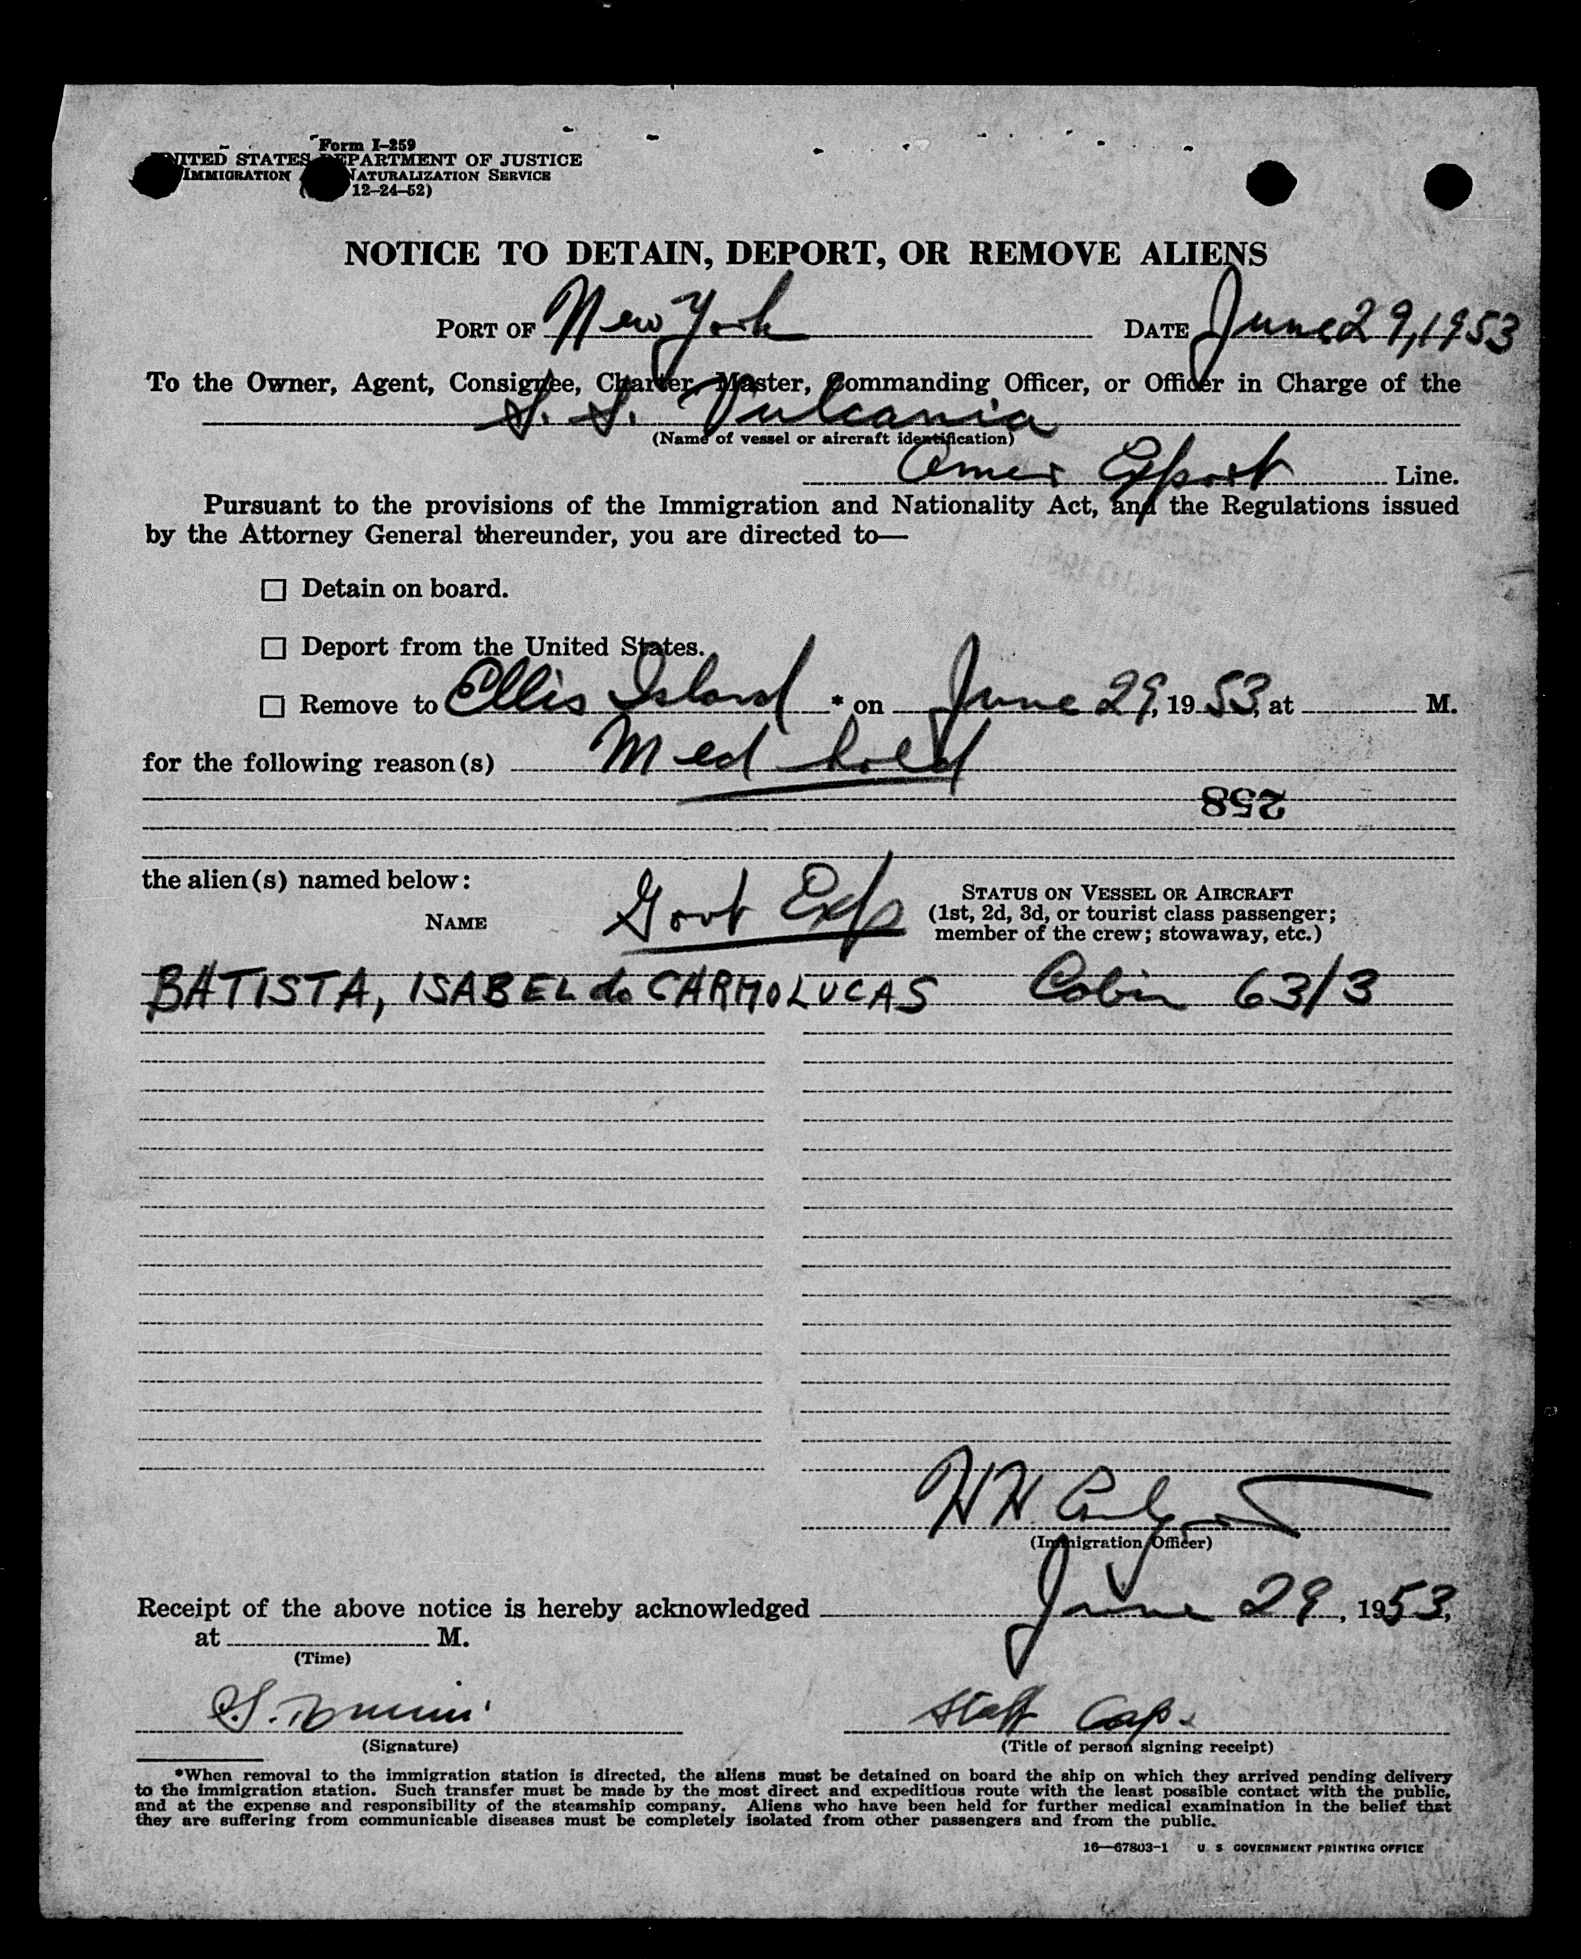 Form I-259
UNITED STATES DEPARTMENT OF JUSTICE
IMMIGRATION NATURALIZATION SERVICE
12-24-52)
NOTICE TO DETAIN, DEPORT, OR REMOVE ALIENS
PORT OF New York DATE June 29, 1953
To the Owner, Agent, Consignee, Charter, Master, Commanding Officer, or Officer in Charge of the
S. S. Vulcania
(Name of vessel or aircraft identification)
Amer Export Line.
Pursuant to the provisions of the Immigration and Nationality Act, and the Regulations issued
by the Attorney General thereunder, you are directed to—
☐ Detain on board.
☐ Deport from the United States.
☐ Remove to Ellis Island * on June 29, 1953, at M.
for the following reason(s) Med hold
258
the alien(s) named below:
NAME
Govt Exp
STATUS ON VESSEL OR AIRCRAFT
(1st, 2d, 3d, or tourist class passenger;
member of the crew; stowaway, etc.)
BATISTA, ISABEL do CARMO LUCAS Cabin 63/3
H H
(Immigration Officer)
Receipt of the above notice is hereby acknowledged June 29, 1953,
at M.
(Time)
Staff Cap.
(Signature) (Title of person signing receipt)
*When removal to the immigration station is directed, the aliens must be detained on board the ship on which they arrived pending delivery
to the immigration station. Such transfer must be made by the most direct and expeditious route with the least possible contact with the public,
and at the expense and responsibility of the steamship company. Aliens who have been held for further medical examination in the belief that
they are suffering from communicable diseases must be completely isolated from other passengers and from the public.
16—67803-1 U. S. GOVERNMENT PRINTING OFFICE